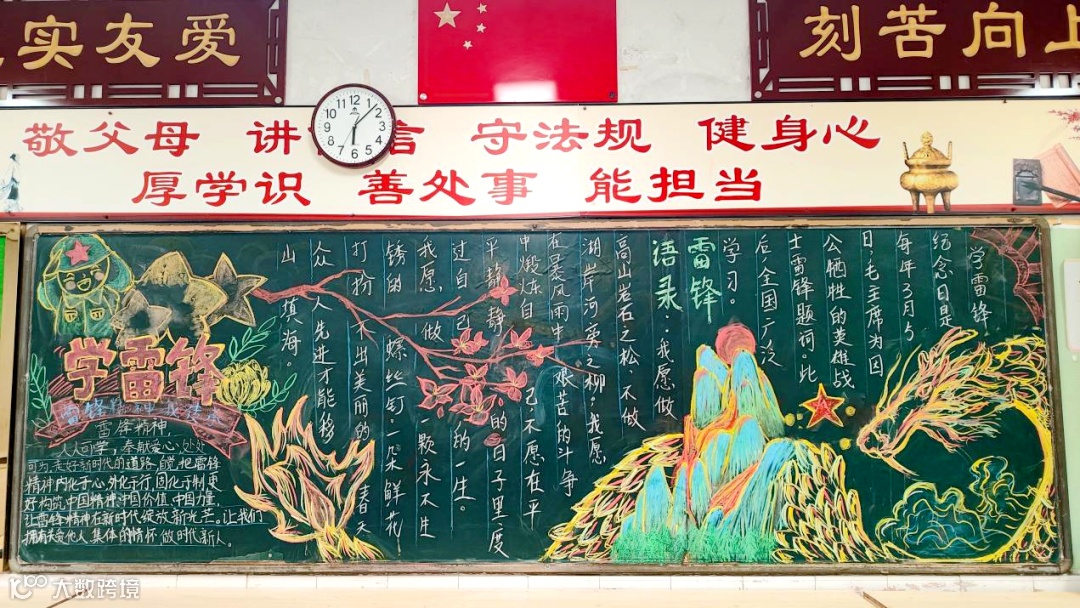 实友爱
刻苦向上
敬父母 讲 信 守法规 健身心
厚学识 善处事 能担当
12
1
2
3
4
5
6
7
8
9
10
11
学雷锋
纪念日是
每年3月5
日,毛主席为因
公牺牲的英雄战
士雷锋题词。此
后,全国广泛
学习。
雷锋
语录:我愿做
高山岩石之松,不做
湖岸河旁之柳。我愿
在暴风雨中 艰苦的斗争
中煅炼自己,不愿在平
平静静的日子里度
过自己的一生。
我愿做一颗永不生
锈的螺丝钉。一朵鲜花
打扮不出美丽的春天
众人先进才能移
山填海。
学雷锋
雷锋精神
雷锋精神,
人人可学;奉献爱心,处处
可为,走好新时代的道路,自觉把雷锋
精神内化于心,外化于行,固化于制,更
好构筑中国精神,中国价值,中国力量,
让雷锋精神在新时代绽放新光芒。让我们
拥有关爱他人、集体的情怀,做时代新人。
大数跨境